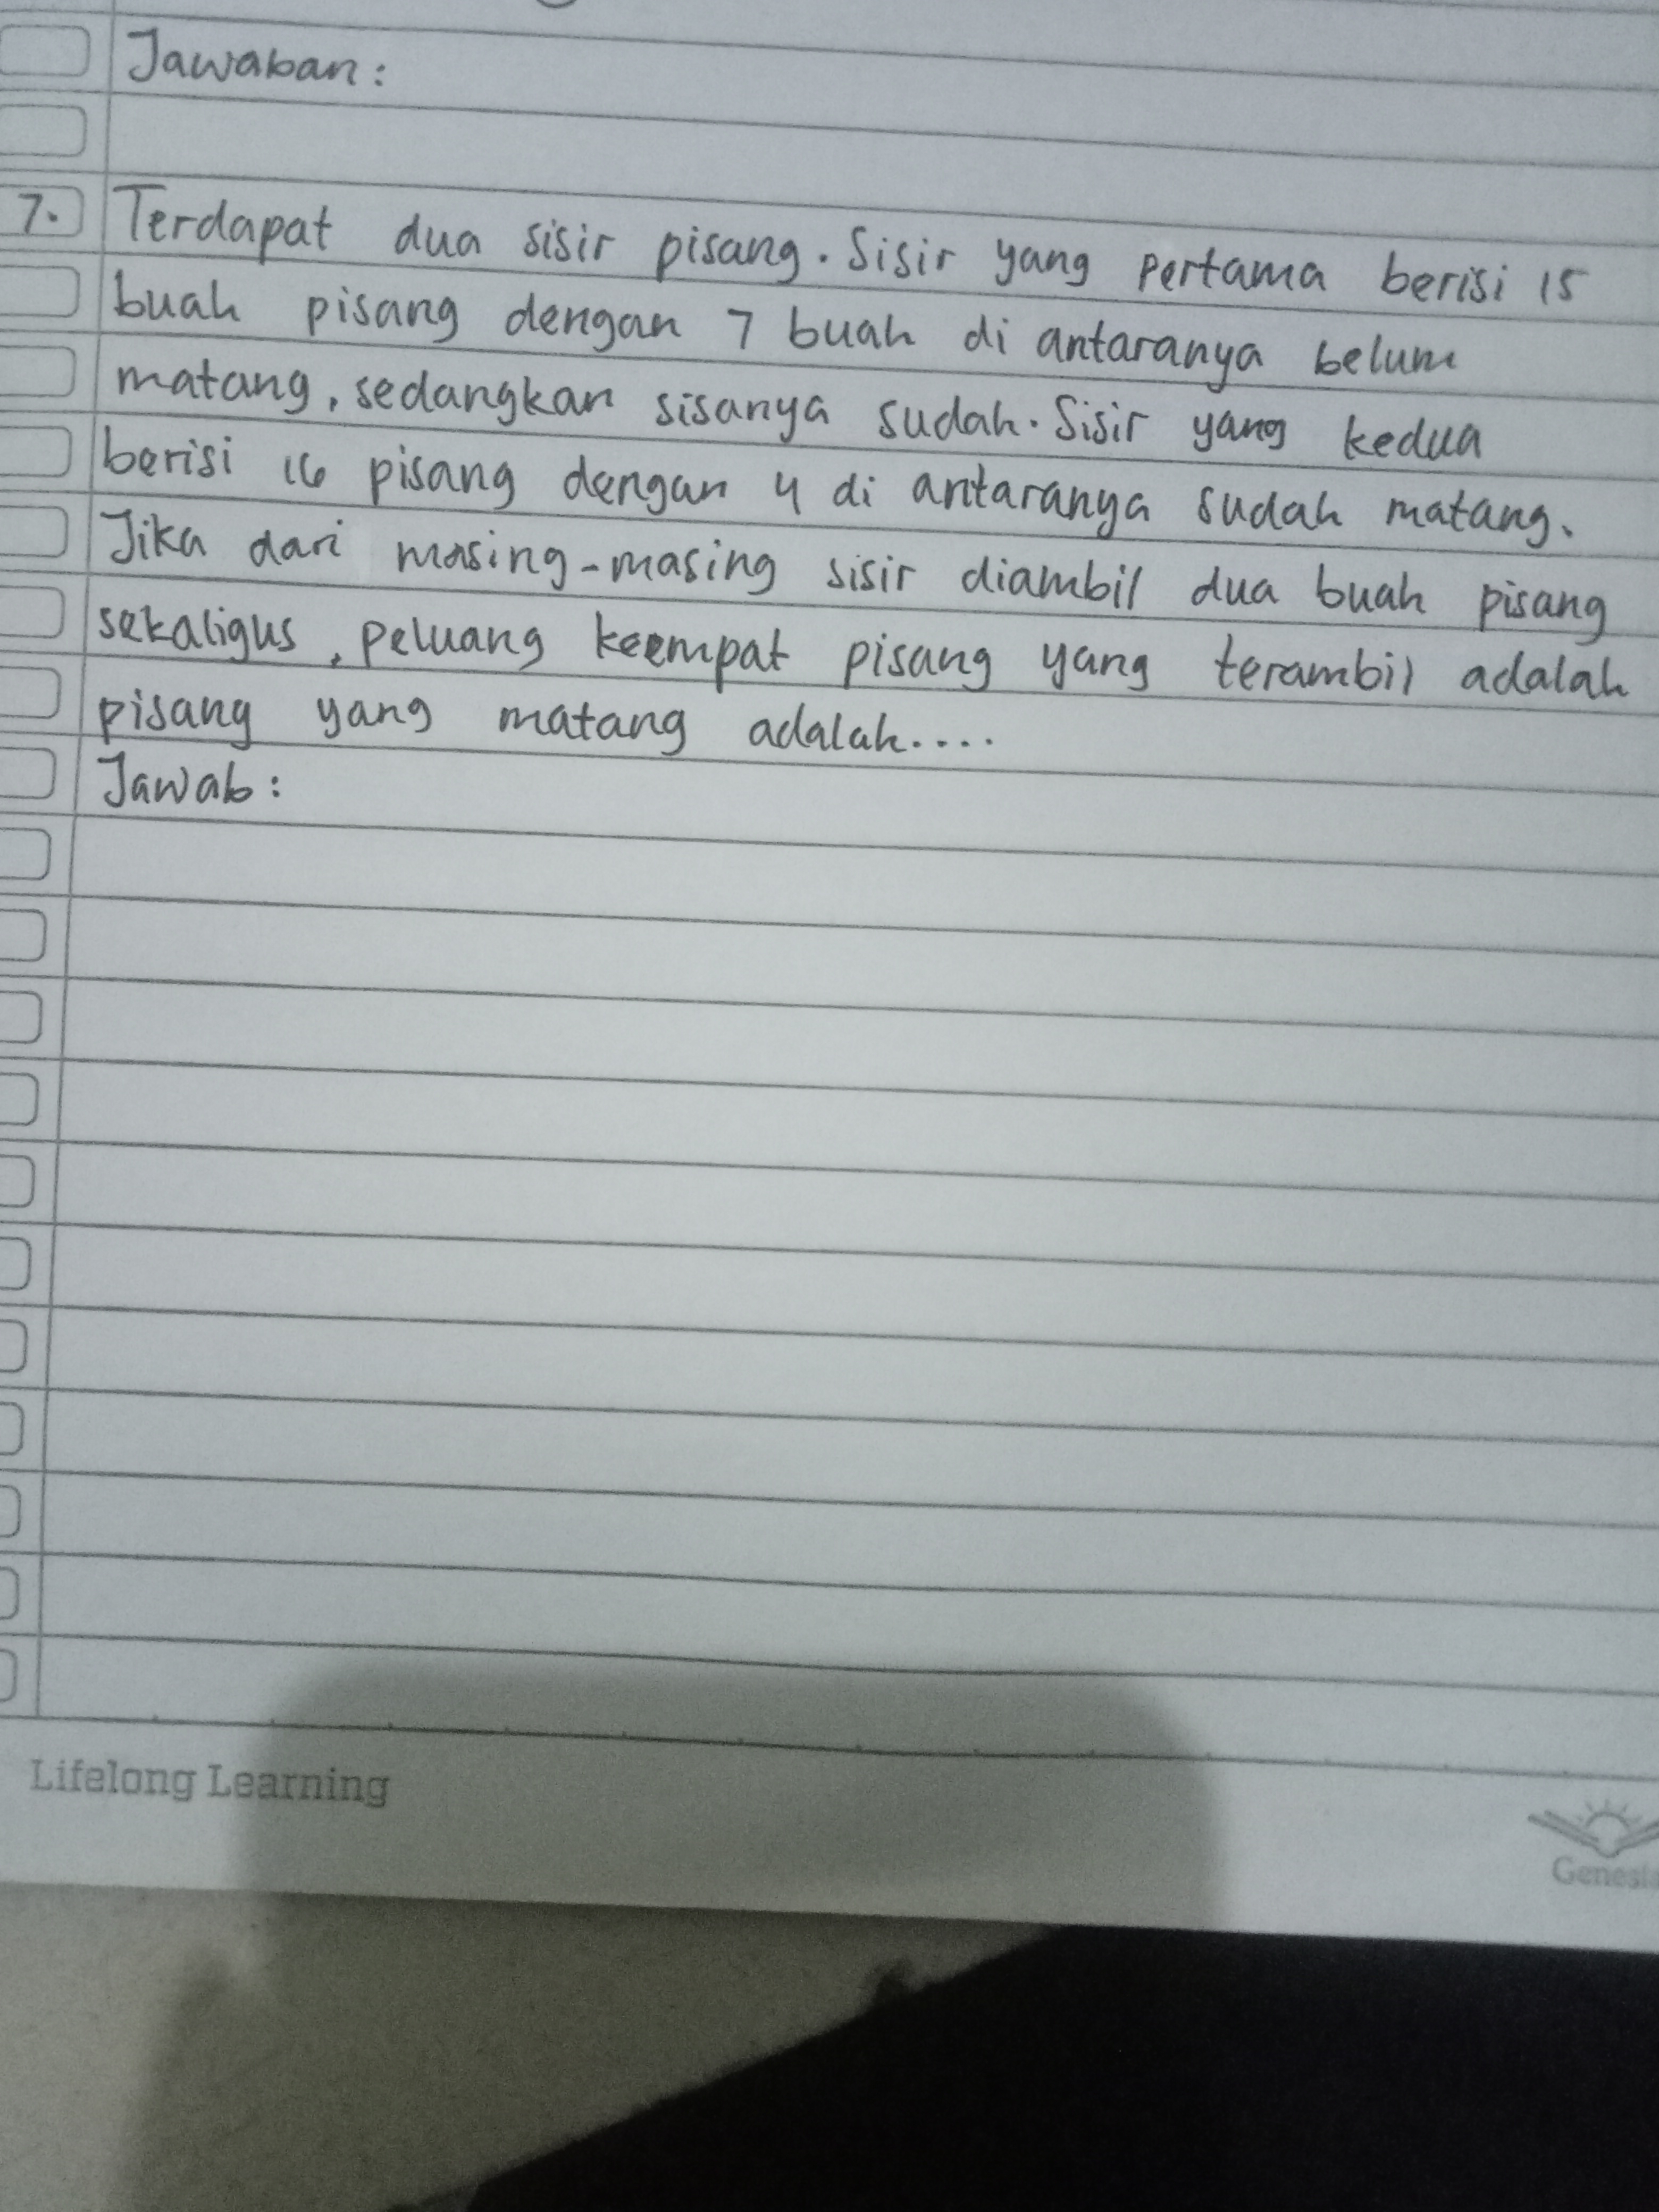 Jawaban :
7. Terdapat dua sisir pisang. Sisir yang pertama berisi 15
buah pisang dengan 7 buah di antaranya belum
matang, sedangkan sisanya sudah. Sisir yang kedua
berisi 16 pisang dengan 4 di antaranya sudah matang.
Jika dari masing-masing sisir diambil dua buah pisang
sekaligus, peluang keempat pisang yang terambil adalah
pisang yang matang adalah....
Jawab :
Lifelong Learning
Genesis